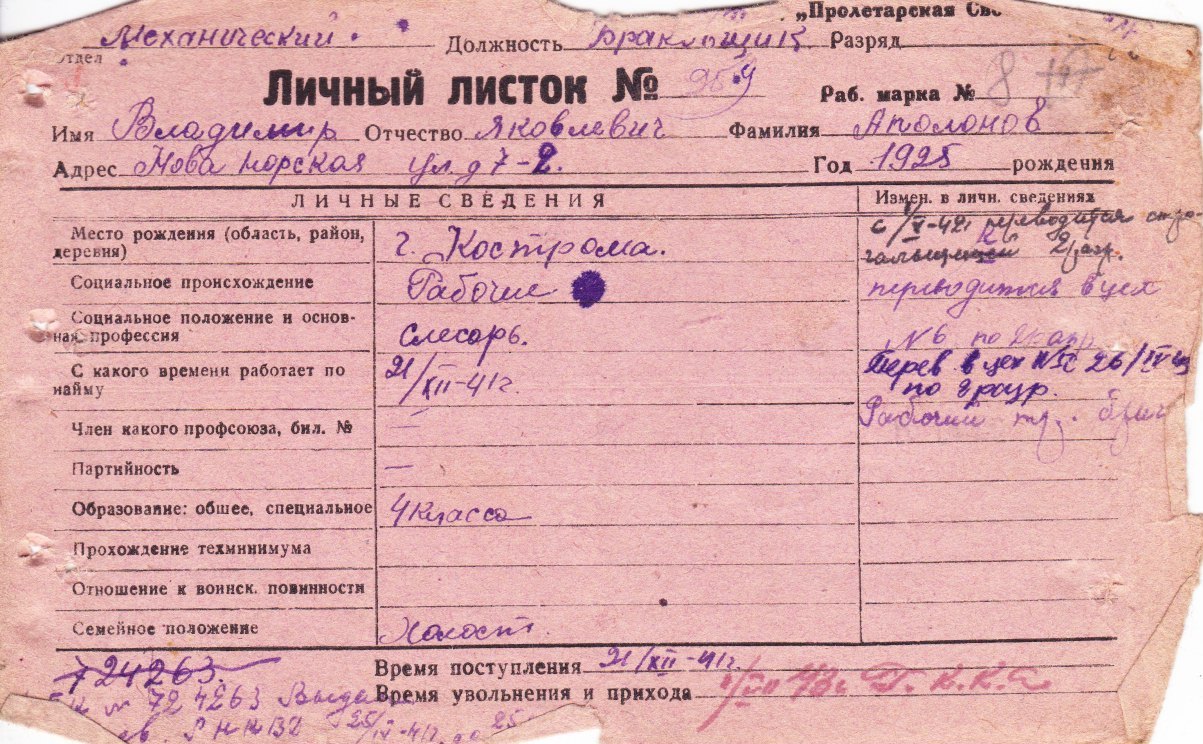 „Пролетарская Св
Механический Должность Бракльщик Разряд
отдел
Личный листок №
Раб. марка № 8
Имя Владимир Отчество Яковлевич Фамилия Аполонов
Адрес ул. д 7-2. Год 1925 рождения
ЛИЧНЫЕ СВЕДЕНИЯ Измен. в личн. сведениях
Место рождения (область, район, деревня) г. Кострома.
с переводится
Социальное происхождение Рабочие переводится в цех
Социальное положение и основная профессия слесарь. № 6 по
С какого времени работает по найму 21/XII-41г. Перев в цех
по 2 разр.
Член какого профсоюза, бил. № — Рабочий
Партийность —
Образование: общее, специальное 4 класса
Прохождение техминимума
Отношение к воинск. повинности
Семейное положение Холост.
724263. Время поступления 21/XII-41г.
№ 724263 Выдан Время увольнения и прихода
25/IV-41г.